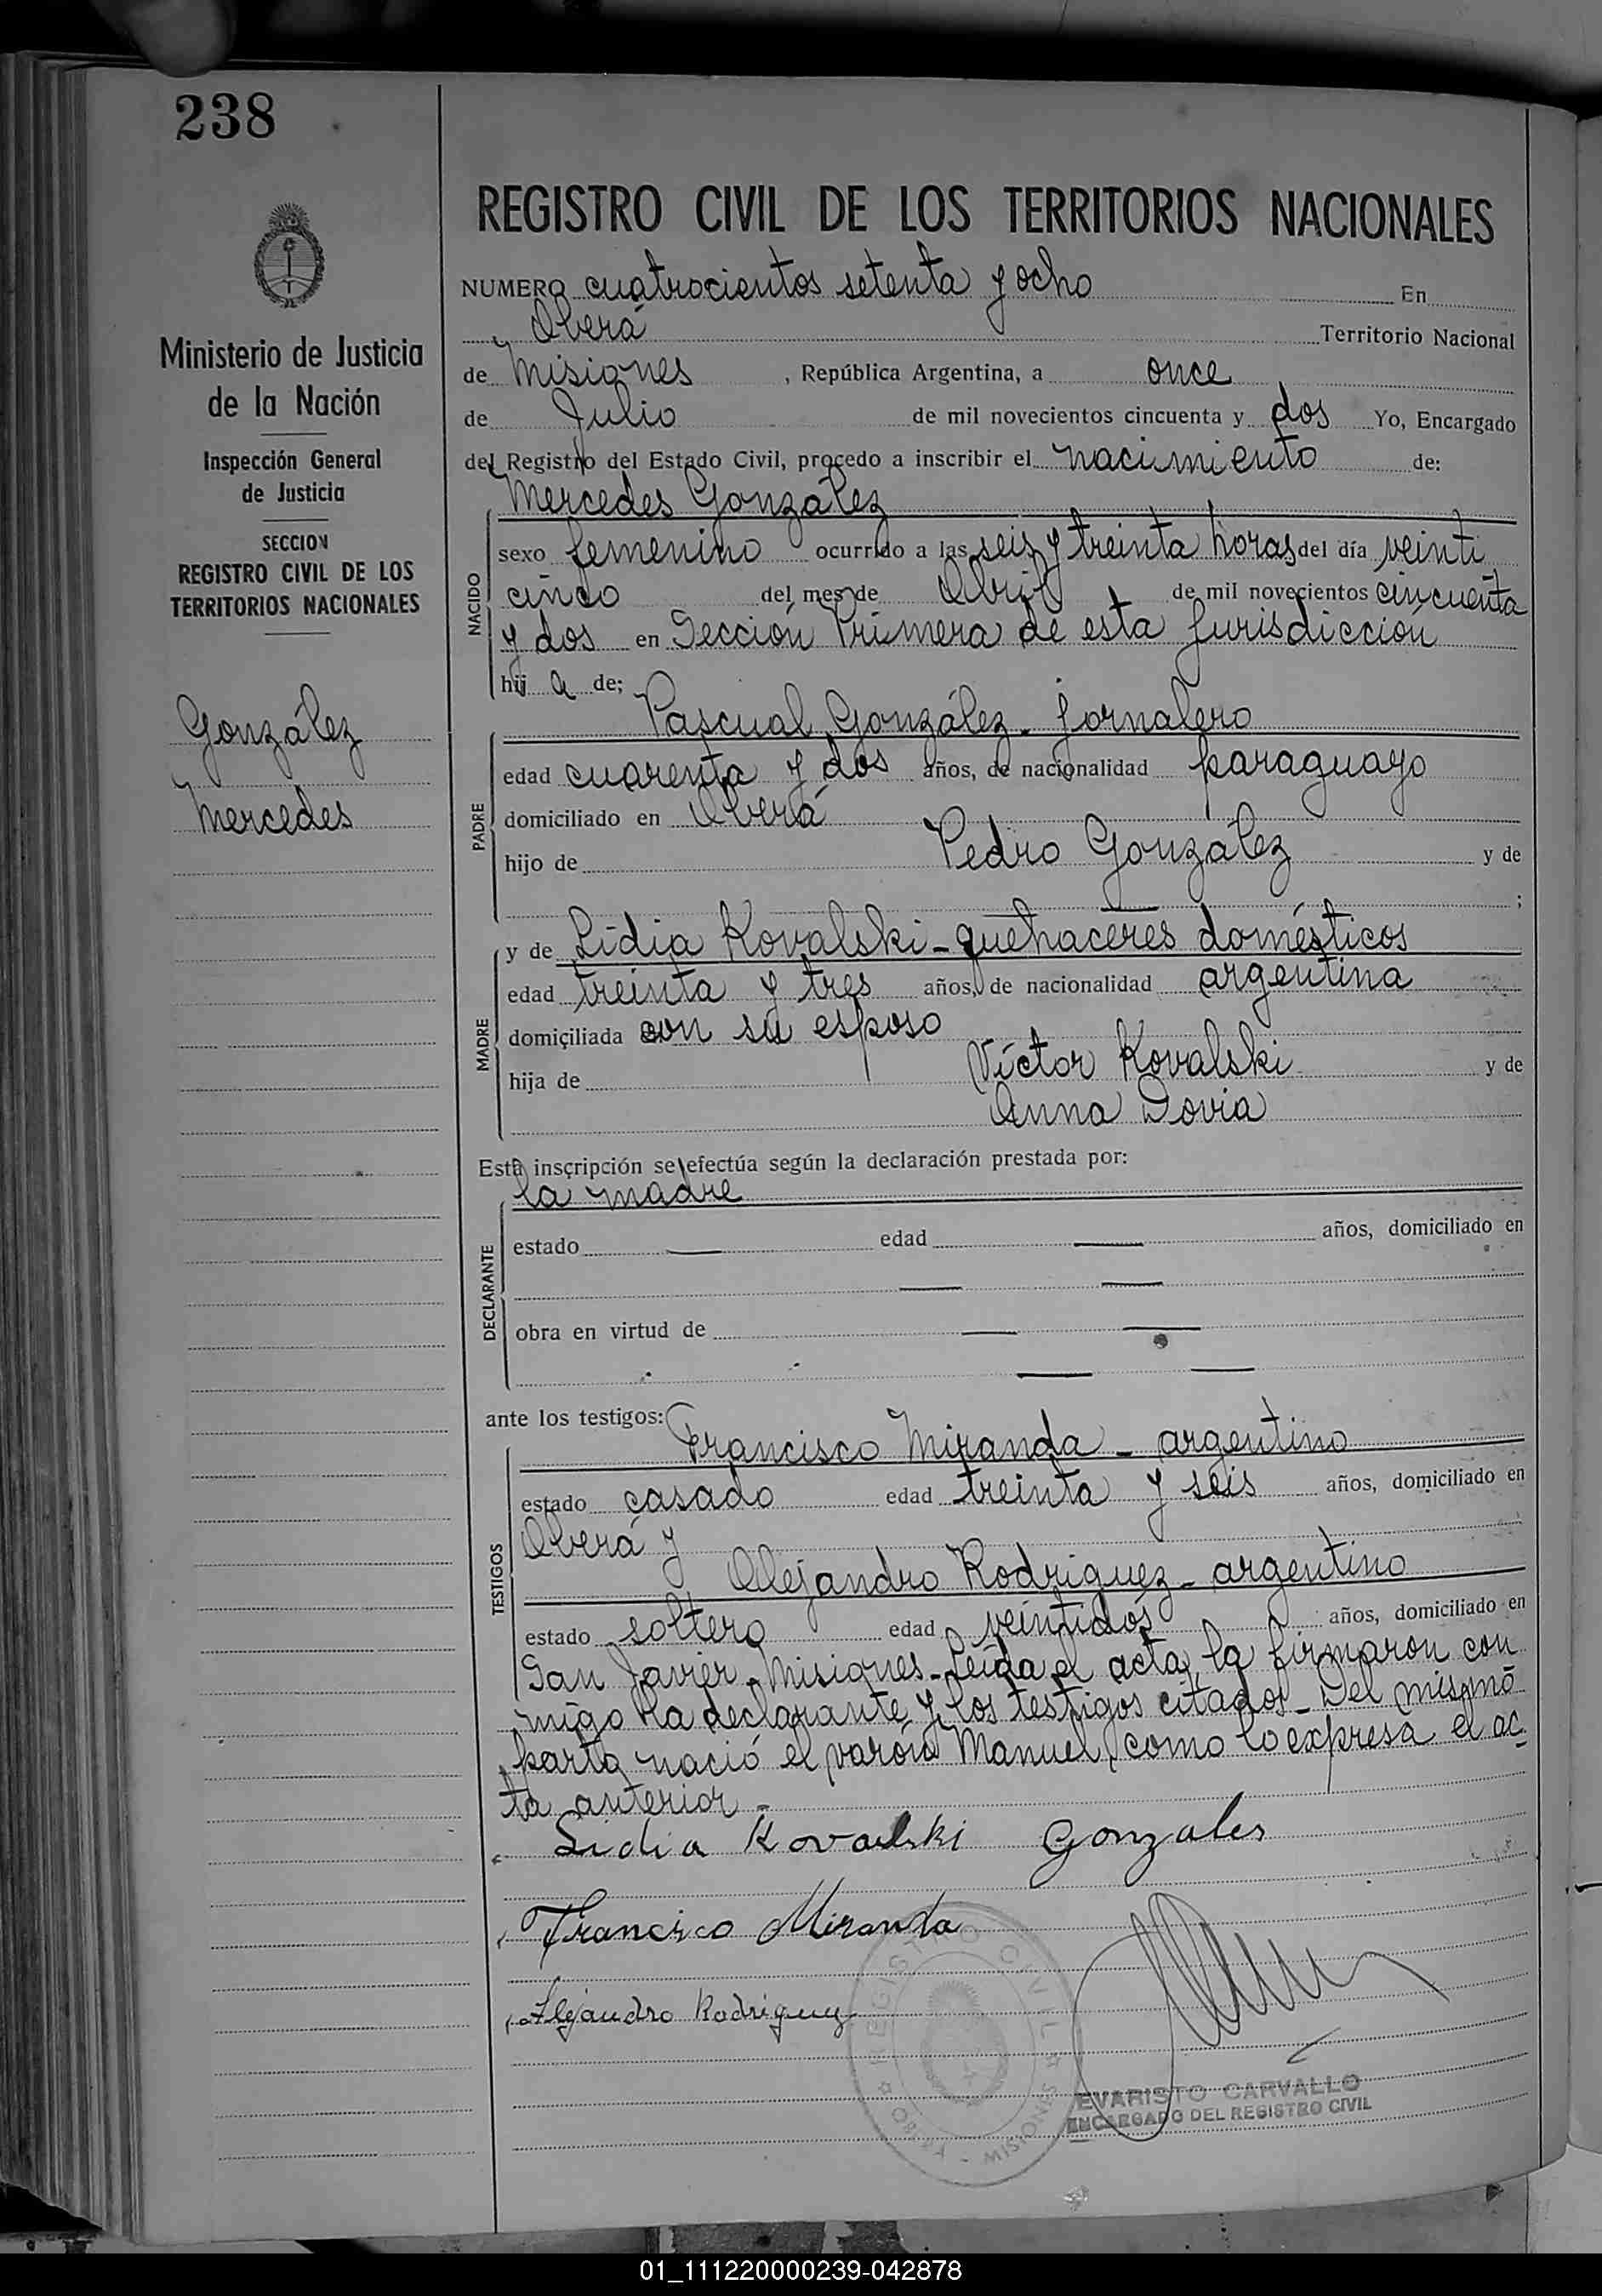 238
Ministerio de Justicia
de la Nación
Inspección General
de Justicia
SECCION
REGISTRO CIVIL DE LOS
TERRITORIOS NACIONALES
González
Mercedes
REGISTRO CIVIL DE LOS TERRITORIOS NACIONALES
NUMERO cuatrocientos setenta y ocho En
Oberá Territorio Nacional
de Misiones , República Argentina, a once
de Julio de mil novecientos cincuenta y dos Yo, Encargado
del Registro del Estado Civil, procedo a inscribir el nacimiento de:
Mercedes González
NACIDO
sexo femenino ocurrido a las seis y treinta horas del día veinti
cinco del mes de Abril de mil novecientos cincuenta
y dos en Sección Primera de esta jurisdicción
hij a de;
Pascual González - jornalero
PADRE
edad cuarenta y dos años, de nacionalidad paraguayo
domiciliado en Oberá
hijo de Pedro González y de
;
y de Lidia Kovalski - quehaceres domésticos
MADRE
edad treinta y tres años, de nacionalidad argentina
domiciliada con su esposo
hija de Víctor Kovalski y de
Anna Dovia
Esta inscripción se efectúa según la declaración prestada por:
la madre
DECLARANTE
estado — edad — años, domiciliado en
— —
obra en virtud de — —
— —
ante los testigos:
Francisco Miranda - argentino
TESTIGOS
estado casado edad treinta y seis años, domiciliado en
Oberá y
Alejandro Rodriguez - argentino
estado soltero edad veintidós años, domiciliado en
San Javier, Misiones - Leída el acta, la firmaron con
migo la declarante y los testigos citados - Del mismo
parto nació el varón Manuel, como lo expresa el ac
ta anterior -
Lidia Kovalski Gonzales
Francisco Miranda
Alejandro Rodriguez
REGISTRO CIVIL
OBERA - MISIONES
EVARISTO CARVALLO
ENCARGADO DEL REGISTRO CIVIL
01_111220000239-042878